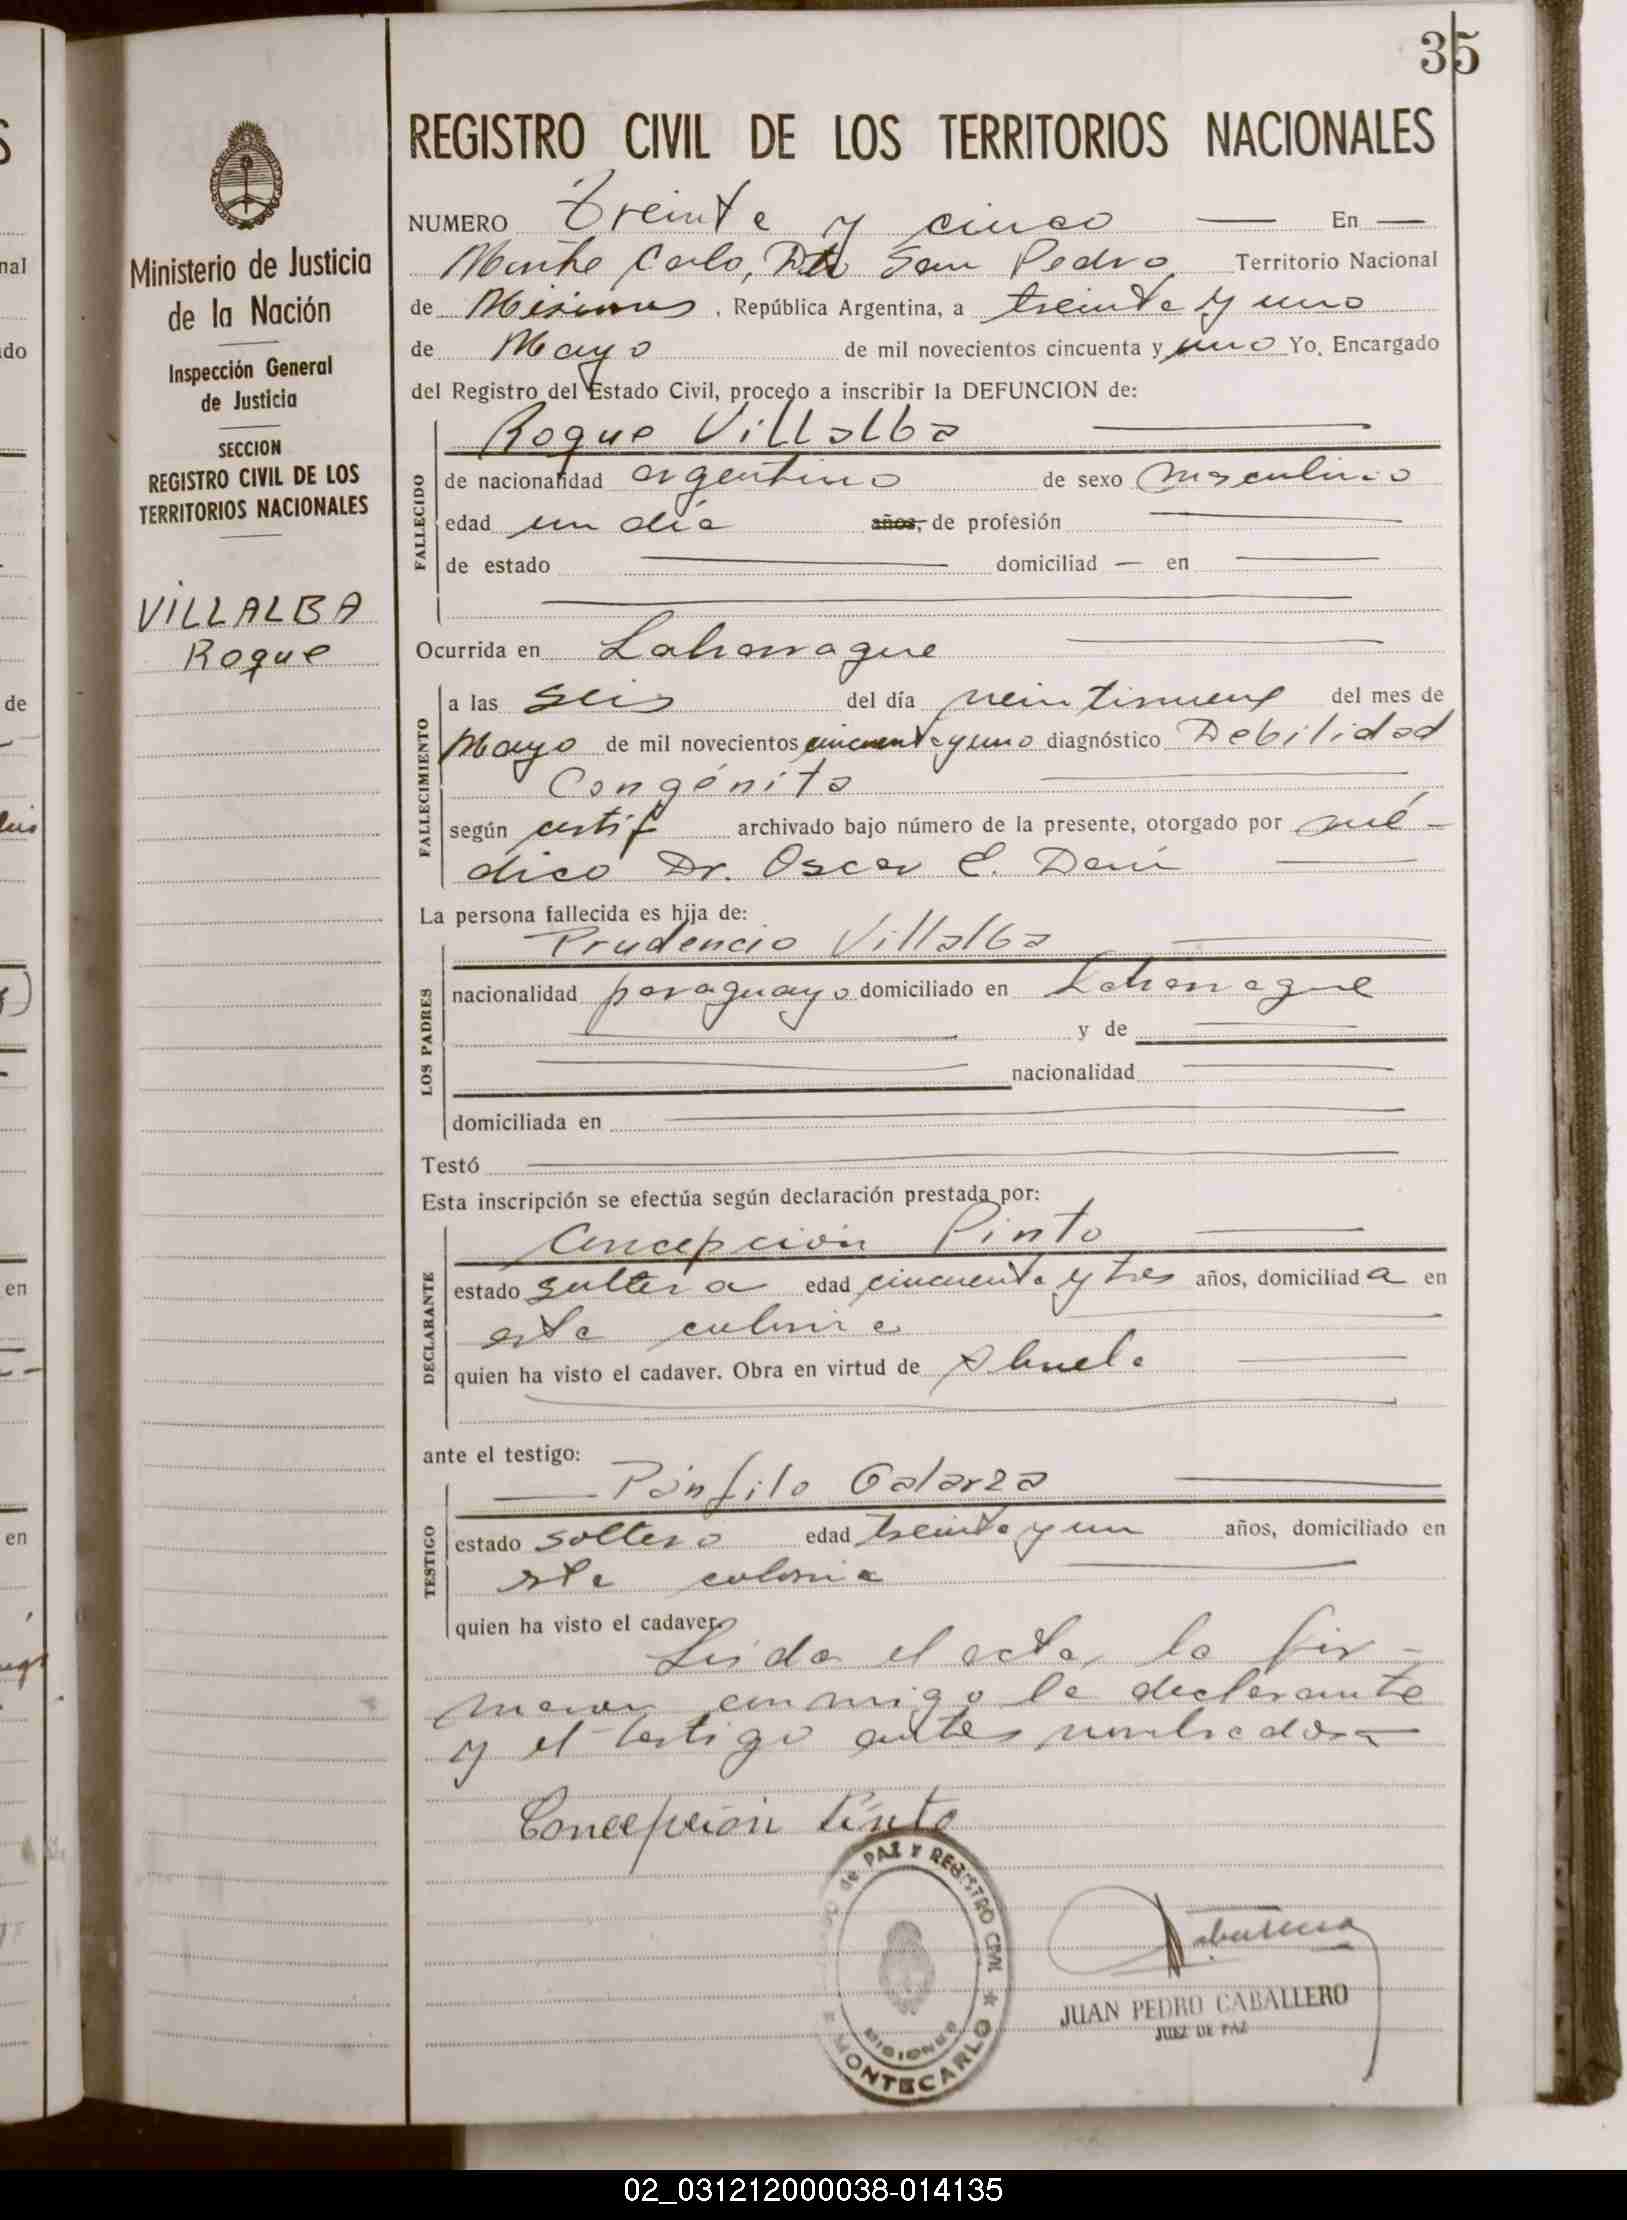 35
REGISTRO CIVIL DE LOS TERRITORIOS NACIONALES
Ministerio de Justicia
de la Nación
Inspección General
de Justicia
SECCION
REGISTRO CIVIL DE LOS
TERRITORIOS NACIONALES
VILLALBA
Roque
NUMERO Treinta y cinco En
Monte Carlo, Dto San Pedro Territorio Nacional
de Misiones, República Argentina, a treinta y uno
de Mayo de mil novecientos cincuenta y uno Yo, Encargado
del Registro del Estado Civil, procedo a inscribir la DEFUNCION de:
FALLECIDO
Roque Villalba
de nacionalidad argentino de sexo masculino
edad un día años, de profesión
de estado domiciliad — en
Ocurrida en Laharrague
FALLECIMIENTO
a las seis del día veintinueve del mes de
Mayo de mil novecientos cincuenta y uno diagnóstico Debilidad
Congénita
según certif archivado bajo número de la presente, otorgado por mé-
dico Dr. Oscar E.
La persona fallecida es hija de:
LOS PADRES
Prudencio Villalba
nacionalidad paraguayo domiciliado en Laharrague
y de
nacionalidad
domiciliada en
Testó
Esta inscripción se efectúa según declaración prestada por:
DECLARANTE
Concepción Pinto
estado soltera edad cincuenta y tres años, domiciliada en
esta colonia
quien ha visto el cadaver. Obra en virtud de Abuela
ante el testigo:
TESTIGO
Pánfilo Galarza
estado soltero edad treinta y un años, domiciliado en
esta colonia
quien ha visto el cadaver.
Leida el acta, la fir-
maron conmigo la declarante
y el testigo antes nombrados.—
Concepción Pinto
de PAZ Y REGISTRO CIVIL
MISIONES
MONTECARLO
JUAN PEDRO CABALLERO
JUEZ DE PAZ
02_031212000038-014135